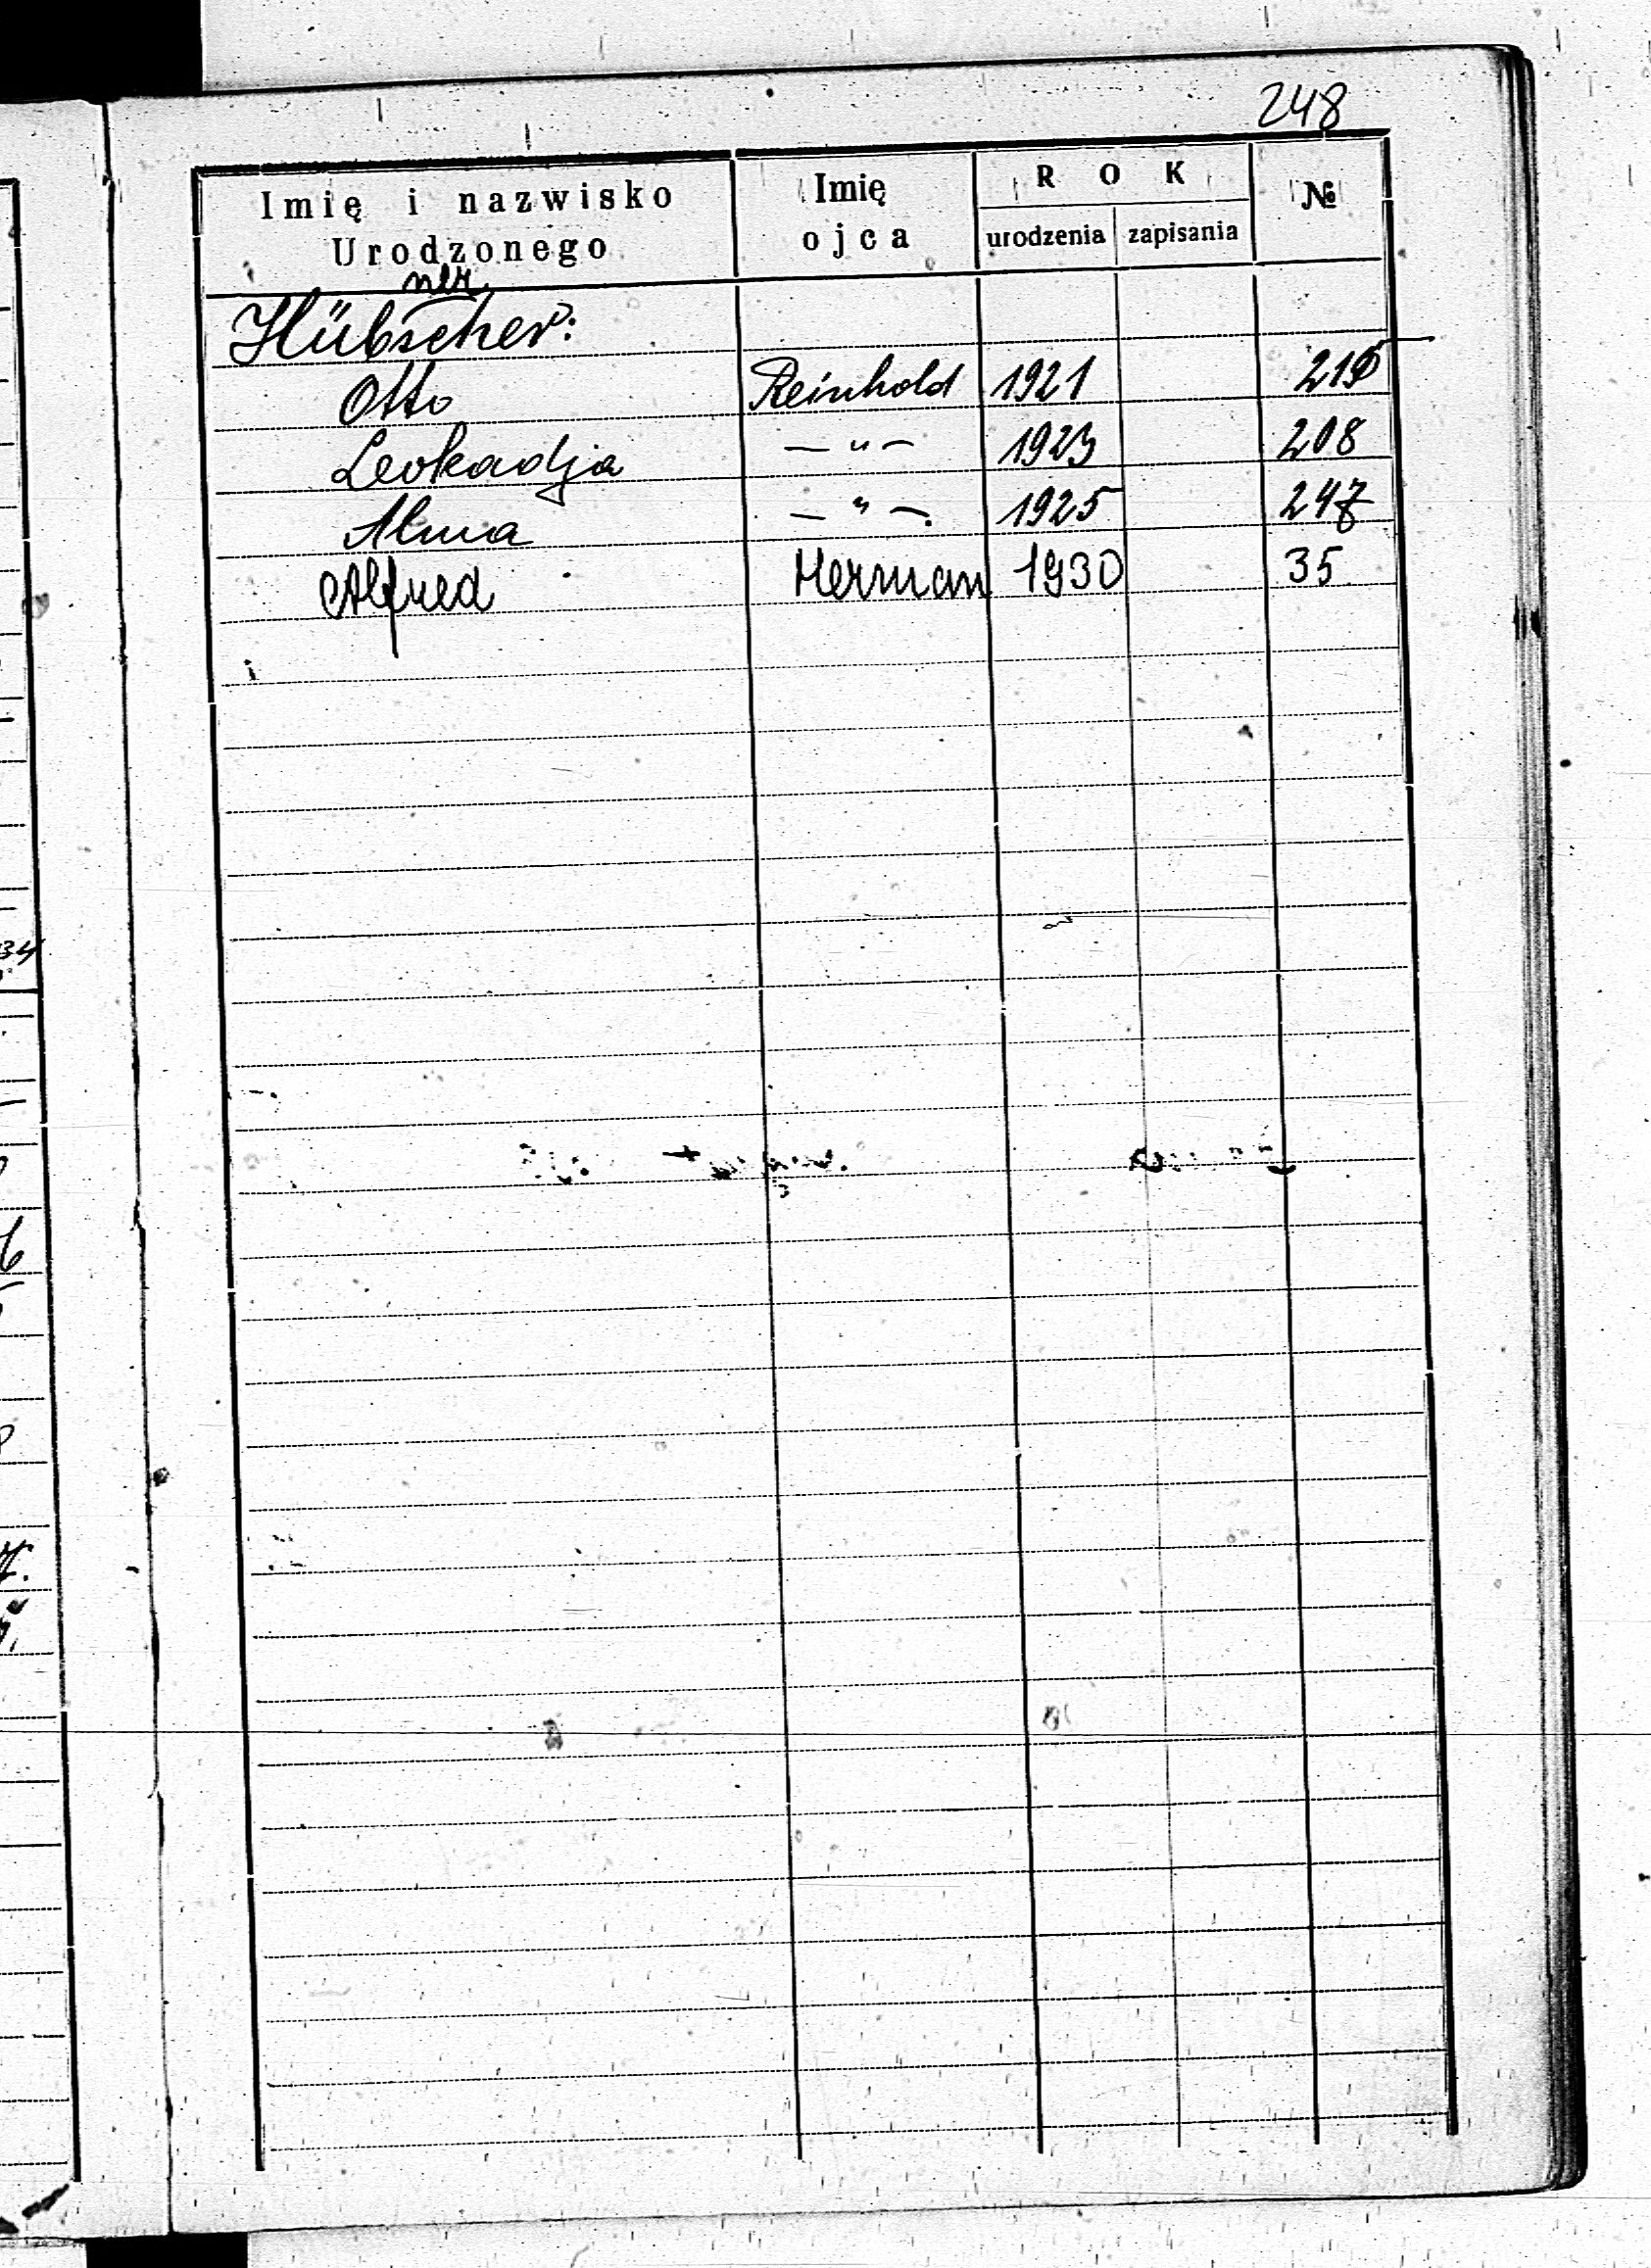 248
Imię i nazwisko Urodzonego
Imię ojca
ROK
urodzenia zapisania
№
ner
Hübscher:
Otto Reinhold 1921
Leokadja — " — 1923 208
Alma — " — 1925 247
Alfred Herman 1930 35